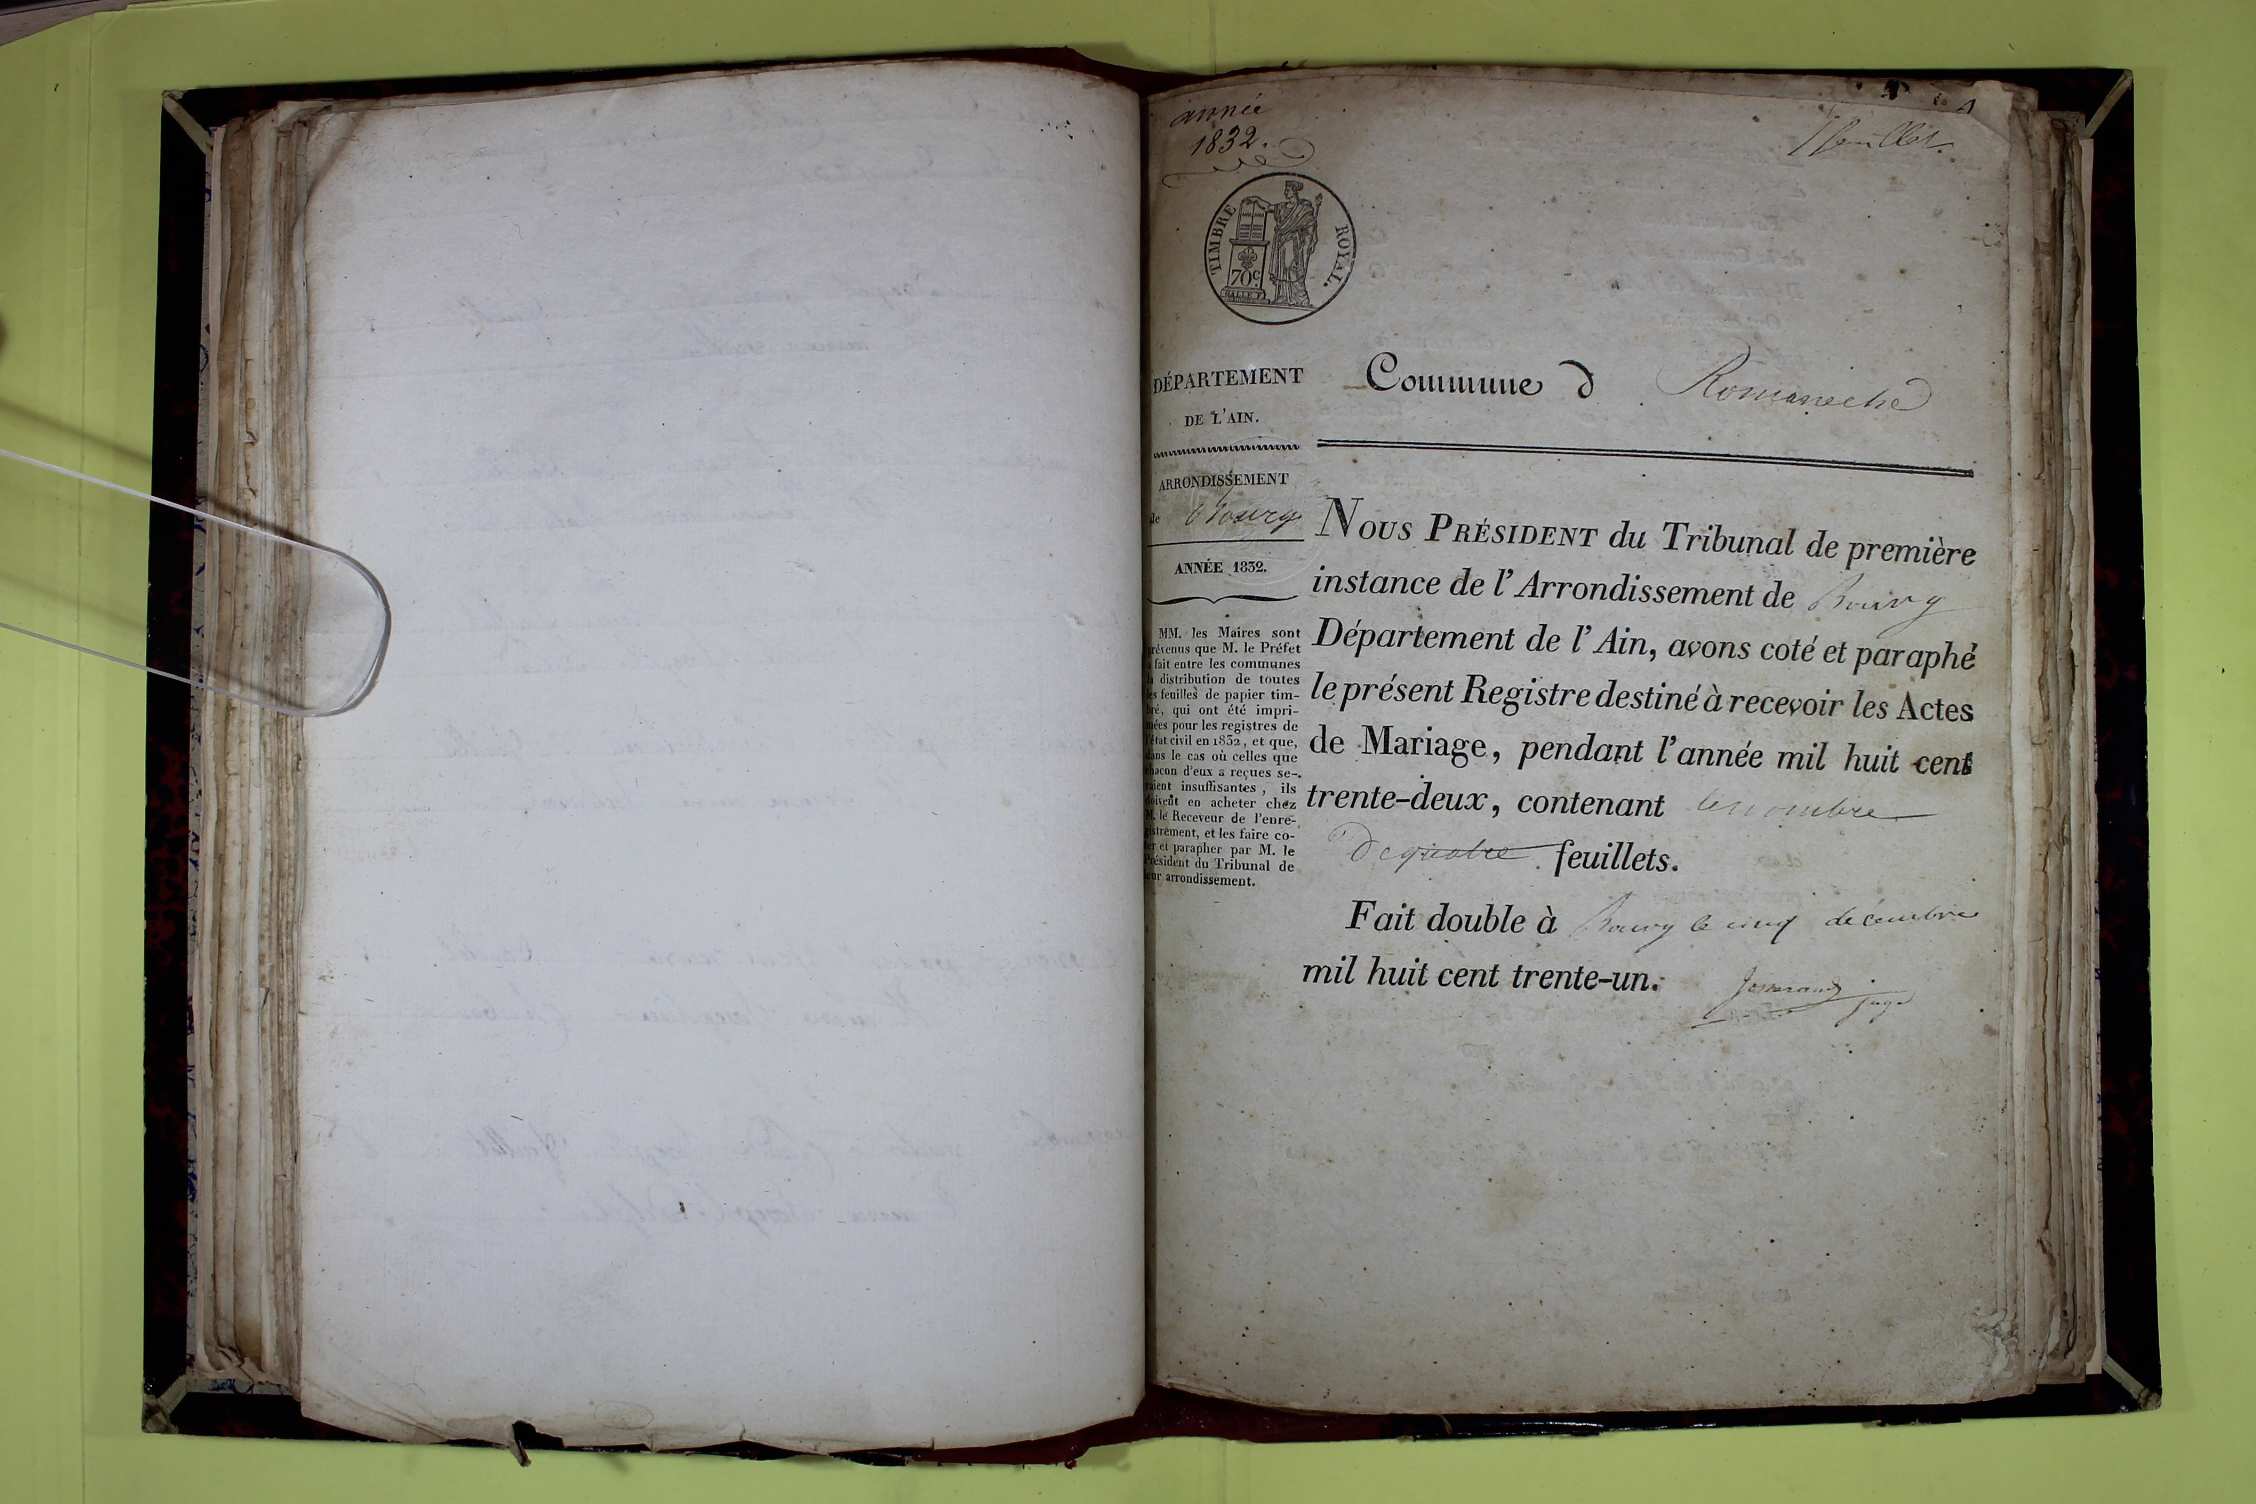 année
1832.
1 feuillet.
TIMBRE ROYAL.
70c
DÉPARTEMENT
DE L'AIN.
ARRONDISSEMENT
de Bourg
ANNÉE 1832.
MM. les Maires sont
prévenus que M. le Préfet
a fait entre les communes
la distribution de toutes
les feuilles de papier tim-
bré, qui ont été impri-
mées pour les registres de
l'état civil en 1832, et que,
dans le cas où celles que
chacon d'eux a reçues se-
raient insuffisantes, ils
doivent en acheter chez
M. le Receveur de l'enre-
gistrement, et les faire co-
ter et parapher par M. le
Président du Tribunal de
leur arrondissement.
Commune d Romaneche
NOUS PRÉSIDENT du Tribunal de première
instance de l'Arrondissement de Bourg
Département de l'Ain, avons coté et paraphé
le présent Registre destiné à recevoir les Actes
de Mariage, pendant l'année mil huit cent
trente-deux, contenant le nombre
De quatre feuillets.
Fait double à Bourg le cinq décembre
mil huit cent trente-un.
juge